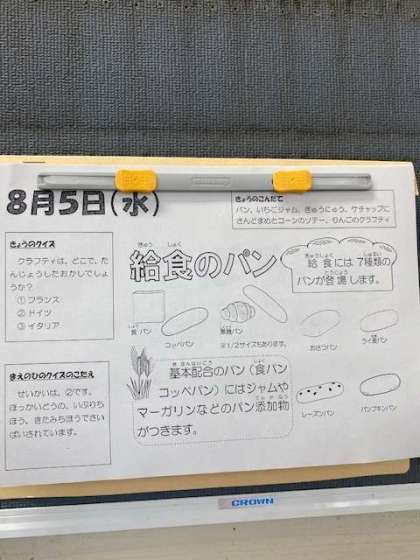 8月5日(水)
きょうのこんだて
パン、いちごジャム、ぎゅうにゅう、ケチャップに
さんどまめとコーンのソテー、りんごのクラフティ
きょうのクイズ
クラフティは、どこで、たんじょうしたおかしでしょうか?
① フランス
② ドイツ
③ イタリア
きゅう しょく
給食のパン
きゅうしょく しゅるい
給食には7種類の
とうじょう
パンが登場します。
食パン
コッペパン
黒糖パン
※1/2サイズもあります。
おさつパン
ライ麦パン
まえのひのクイズのこたえ
せいかいは、②です。
ほっかいどうの、いぶりち
ほう、きたみちほうでさい
ばいされています。
き ほんはいごう しょく
基本配合のパン(食パン
コッペパン)にはジャムや
てん か ぶつ
マーガリンなどのパン添加物
がつきます。
レーズンパン
パンプキンパン
CROWN